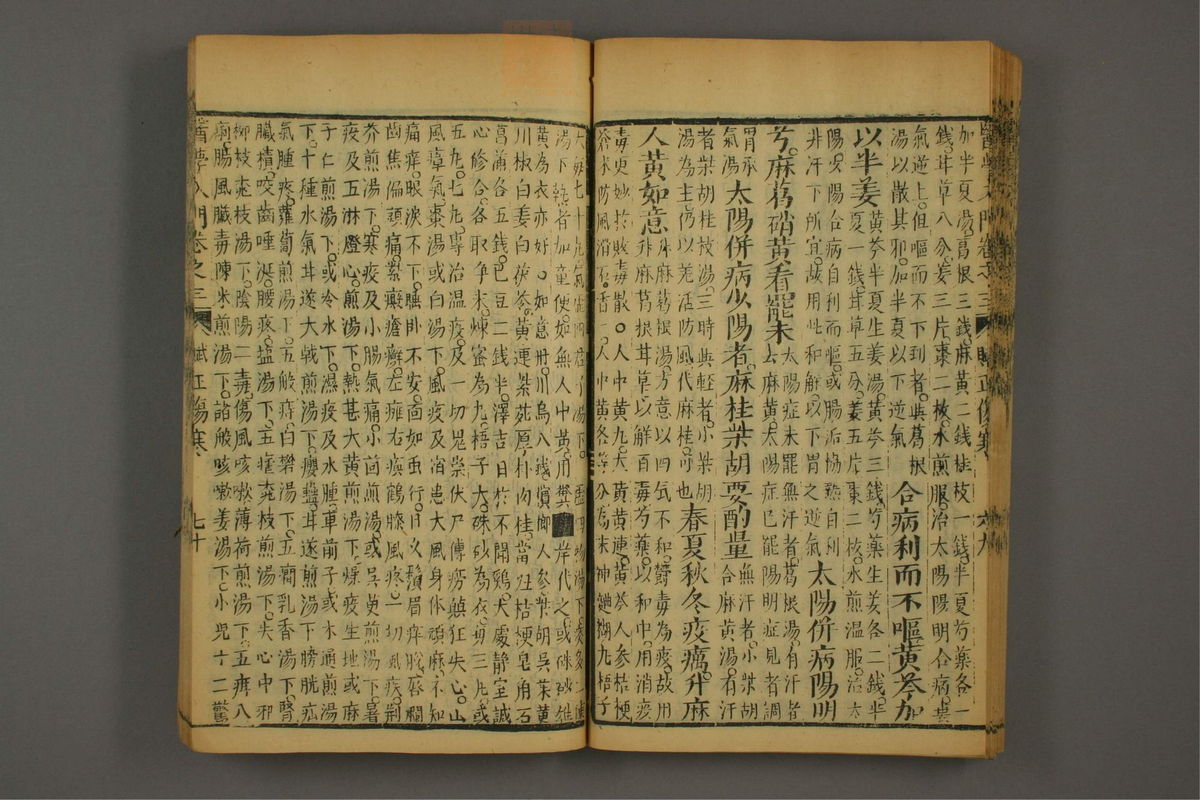 醫學入門卷之三 賦正傷寒 六九
加半夏湯葛根三錢麻黃二錢桂枝一錢半夏芍藥各一
錢甘草八分姜三片棗二枚水煎服治太陽陽明合病葢
氣逆上但嘔而不下利者與葛根
湯以散其邪加半夏以下逆氣
合病利而不嘔黃芩加
以半姜
黃芩半夏生姜湯黃芩三錢芍藥生姜各二錢半
夏一錢甘草五分姜五片棗二枚水煎温服治太
陽少陽合病自利而嘔或腸垢協熱自利
井汗下所宜故用此和解以下胃之逆氣
太陽併病陽明
芍麻葛硝黃看罷未
太陽症未罷無汗者葛根湯有汗者
去麻黃太陽症已罷陽明症見者調
胃承
氣湯
太陽併病少陽者麻桂柴胡要酌量
無汗者小柴胡
合麻黃湯有汗
者柴胡桂枝湯三時與輕者小柴胡
湯為主仍以羌活防風代麻桂可也
春夏秋冬疫癘升麻
人黃如意
升麻葛根湯方意以四氣不和欝毒為疫故用
升麻葛根甘草以解百毒芍藥以和中用消疫
毒更妙於敗毒散。人中黃丸大黃黃連黃芩人參桔梗
蒼朮防風滑石香附人中黃各等分為末神麯糊丸梧子
大每七十丸氣虛四君子湯下血虛四物湯下痰多二陳
湯下熱者加童便如無人中黃用糞岸代之或硃砂雄
黃為衣亦好。如意丹川烏八錢檳榔人參柴胡吳茱萸
川椒白姜白茯苓黃連紫菀厚朴肉桂當歸桔梗皂角石
菖蒲各五錢巴豆二錢半擇吉日於不聞鷄犬處靜室誠
心修合各取淨末煉蜜為丸梧子大硃砂為衣每三丸或
五丸七丸專治温疫及一切鬼祟伏尸傳癆癲狂失心山
風瘴氣棗湯或白湯下風疫及宿患大風身体頑麻不知
痛癢眼淚不下睡卧不安面如虫行日久鬚眉痒脫唇爛
齒焦偏頭痛紫癜瘡癬左癱右瘓鶴膝風疼一切風疾荆
芥煎湯下寒疫及小腸氣痛小茴煎湯或吳茰煎湯下暑
疫及五淋燈心煎湯下熱甚大黃煎湯下燥疫生地或麻
子仁煎湯下或冷水下濕疫及水腫車前子或木通煎湯
下十種水氣甘遂大戟煎湯下癭蠱甘遂煎湯下膀胱疝
氣腫疼蘿蔔煎湯下五般痔白礬湯下五癇乳香湯下腎
臟積咬齒唾涎腰疼塩湯下五瘧桃枝煎湯下失心中邪
柳枝桃枝湯下陰陽二毒傷風咳嗽薄荷煎湯下五痺八
痢腸風臟毒陳米煎湯下諸般咳嗽姜湯下小兒十二驚
醫學入門卷之三 賦正傷寒 七十